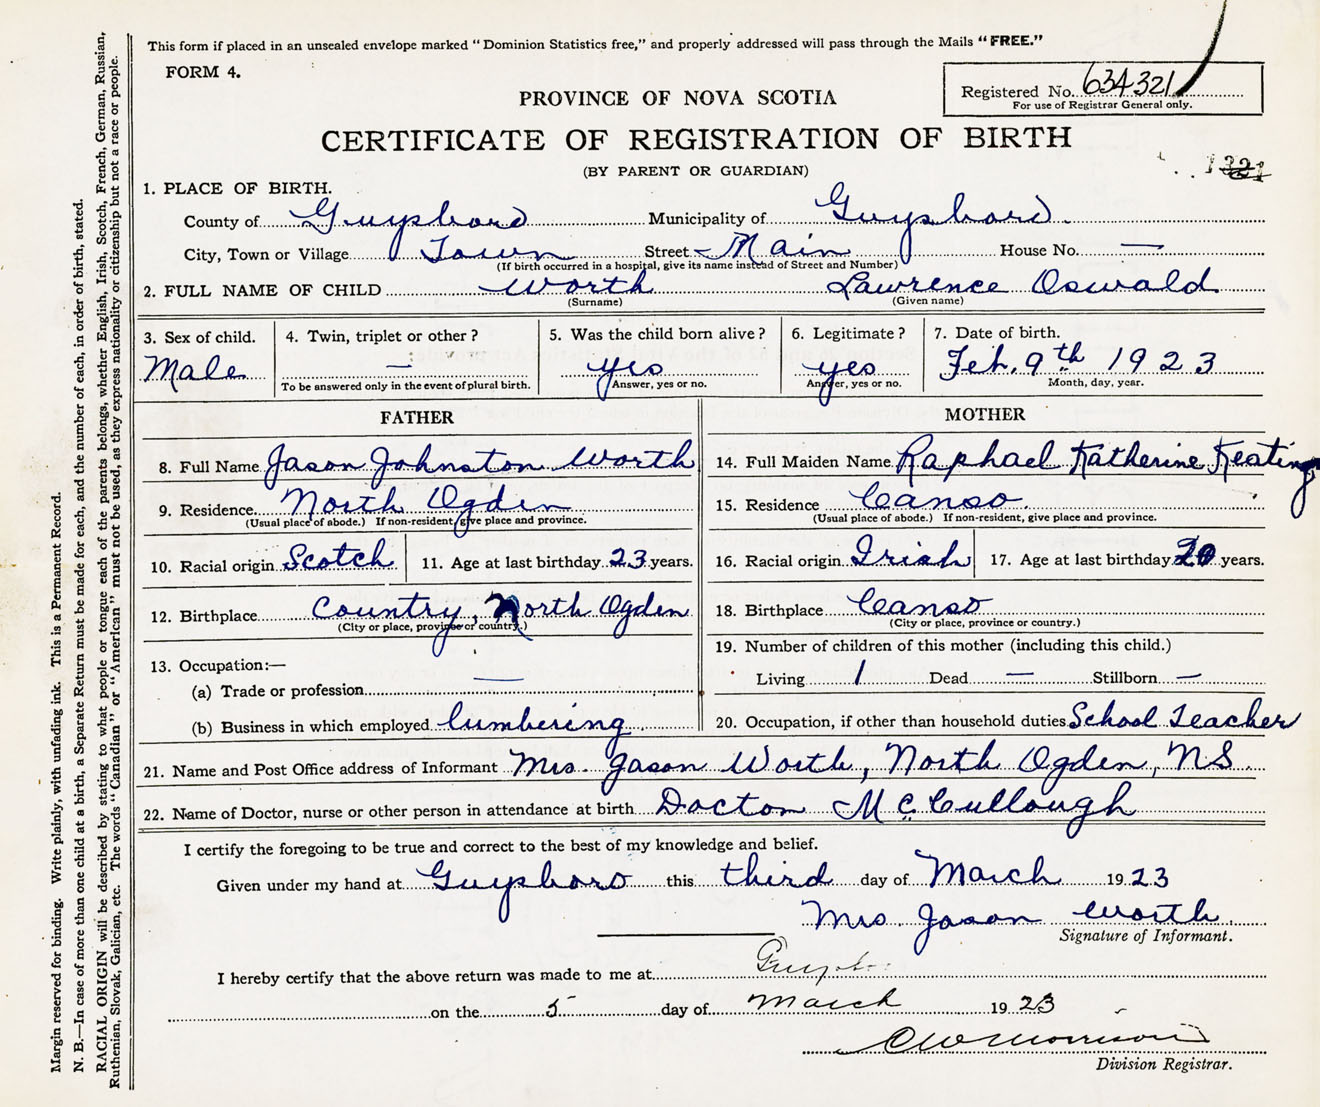 This form if placed in an unsealed envelope marked "Dominion Statistics free," and properly addressed will pass through the Mails "FREE."
FORM 4.
Registered No. 634321
For use of Registrar General only.
PROVINCE OF NOVA SCOTIA
CERTIFICATE OF REGISTRATION OF BIRTH
(BY PARENT OR GUARDIAN)
1. PLACE OF BIRTH.
County of Guysboro Municipality of Guysboro
City, Town or Village Town Street Main House No. —
(If birth occurred in a hospital, give its name instead of Street and Number)
2. FULL NAME OF CHILD Worth Lawrence Oswald
(Surname) (Given name)
3. Sex of child. 4. Twin, triplet or other? 5. Was the child born alive? 6. Legitimate? 7. Date of birth.
Male — yes yes Feb. 9th 1923
To be answered only in the event of plural birth. Answer, yes or no. Answer, yes or no. Month, day, year.
FATHER
8. Full Name Jason Johnston Worth
9. Residence North Ogden
(Usual place of abode.) If non-resident, give place and province.
10. Racial origin Scotch 11. Age at last birthday 23 years.
12. Birthplace Country, North Ogden
(City or place, province or country.)
13. Occupation:—
(a) Trade or profession —
(b) Business in which employed lumbering
MOTHER
14. Full Maiden Name Raphael Katherine Keating
15. Residence Canso
(Usual place of abode.) If non-resident, give place and province.
16. Racial origin Irish 17. Age at last birthday 20 years.
18. Birthplace Canso
(City or place, province or country.)
19. Number of children of this mother (including this child.)
Living 1 Dead — Stillborn —
20. Occupation, if other than household duties School Teacher
21. Name and Post Office address of Informant Mrs. Jason Worth, North Ogden, NS
22. Name of Doctor, nurse or other person in attendance at birth Doctor McCullough
I certify the foregoing to be true and correct to the best of my knowledge and belief.
Given under my hand at Guysboro this third day of March 1923
Mrs Jason Worth
Signature of Informant.
I hereby certify that the above return was made to me at
on the 5 day of March 1923
CW Morrison
Division Registrar.
Margin reserved for binding. Write plainly, with unfading ink. This is a Permanent Record.
N. B.—In case of more than one child at a birth, a Separate Return must be made for each, and the number of each, in order of birth, stated.
RACIAL ORIGIN will be described by stating to what people or tongue each of the parents belongs, whether English, Irish, Scotch, French, German, Russian,
Ruthenian, Slovak, Galician, etc. The words "Canadian" or "American" must not be used, as they express nationality or citizenship but not a race or people.